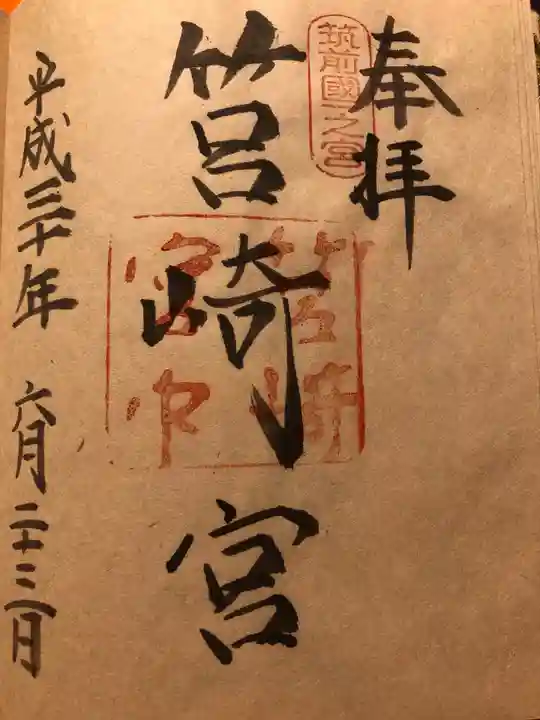 奉拝
筑前國一之宮
筥崎宮
平成三十年 六月二十三日